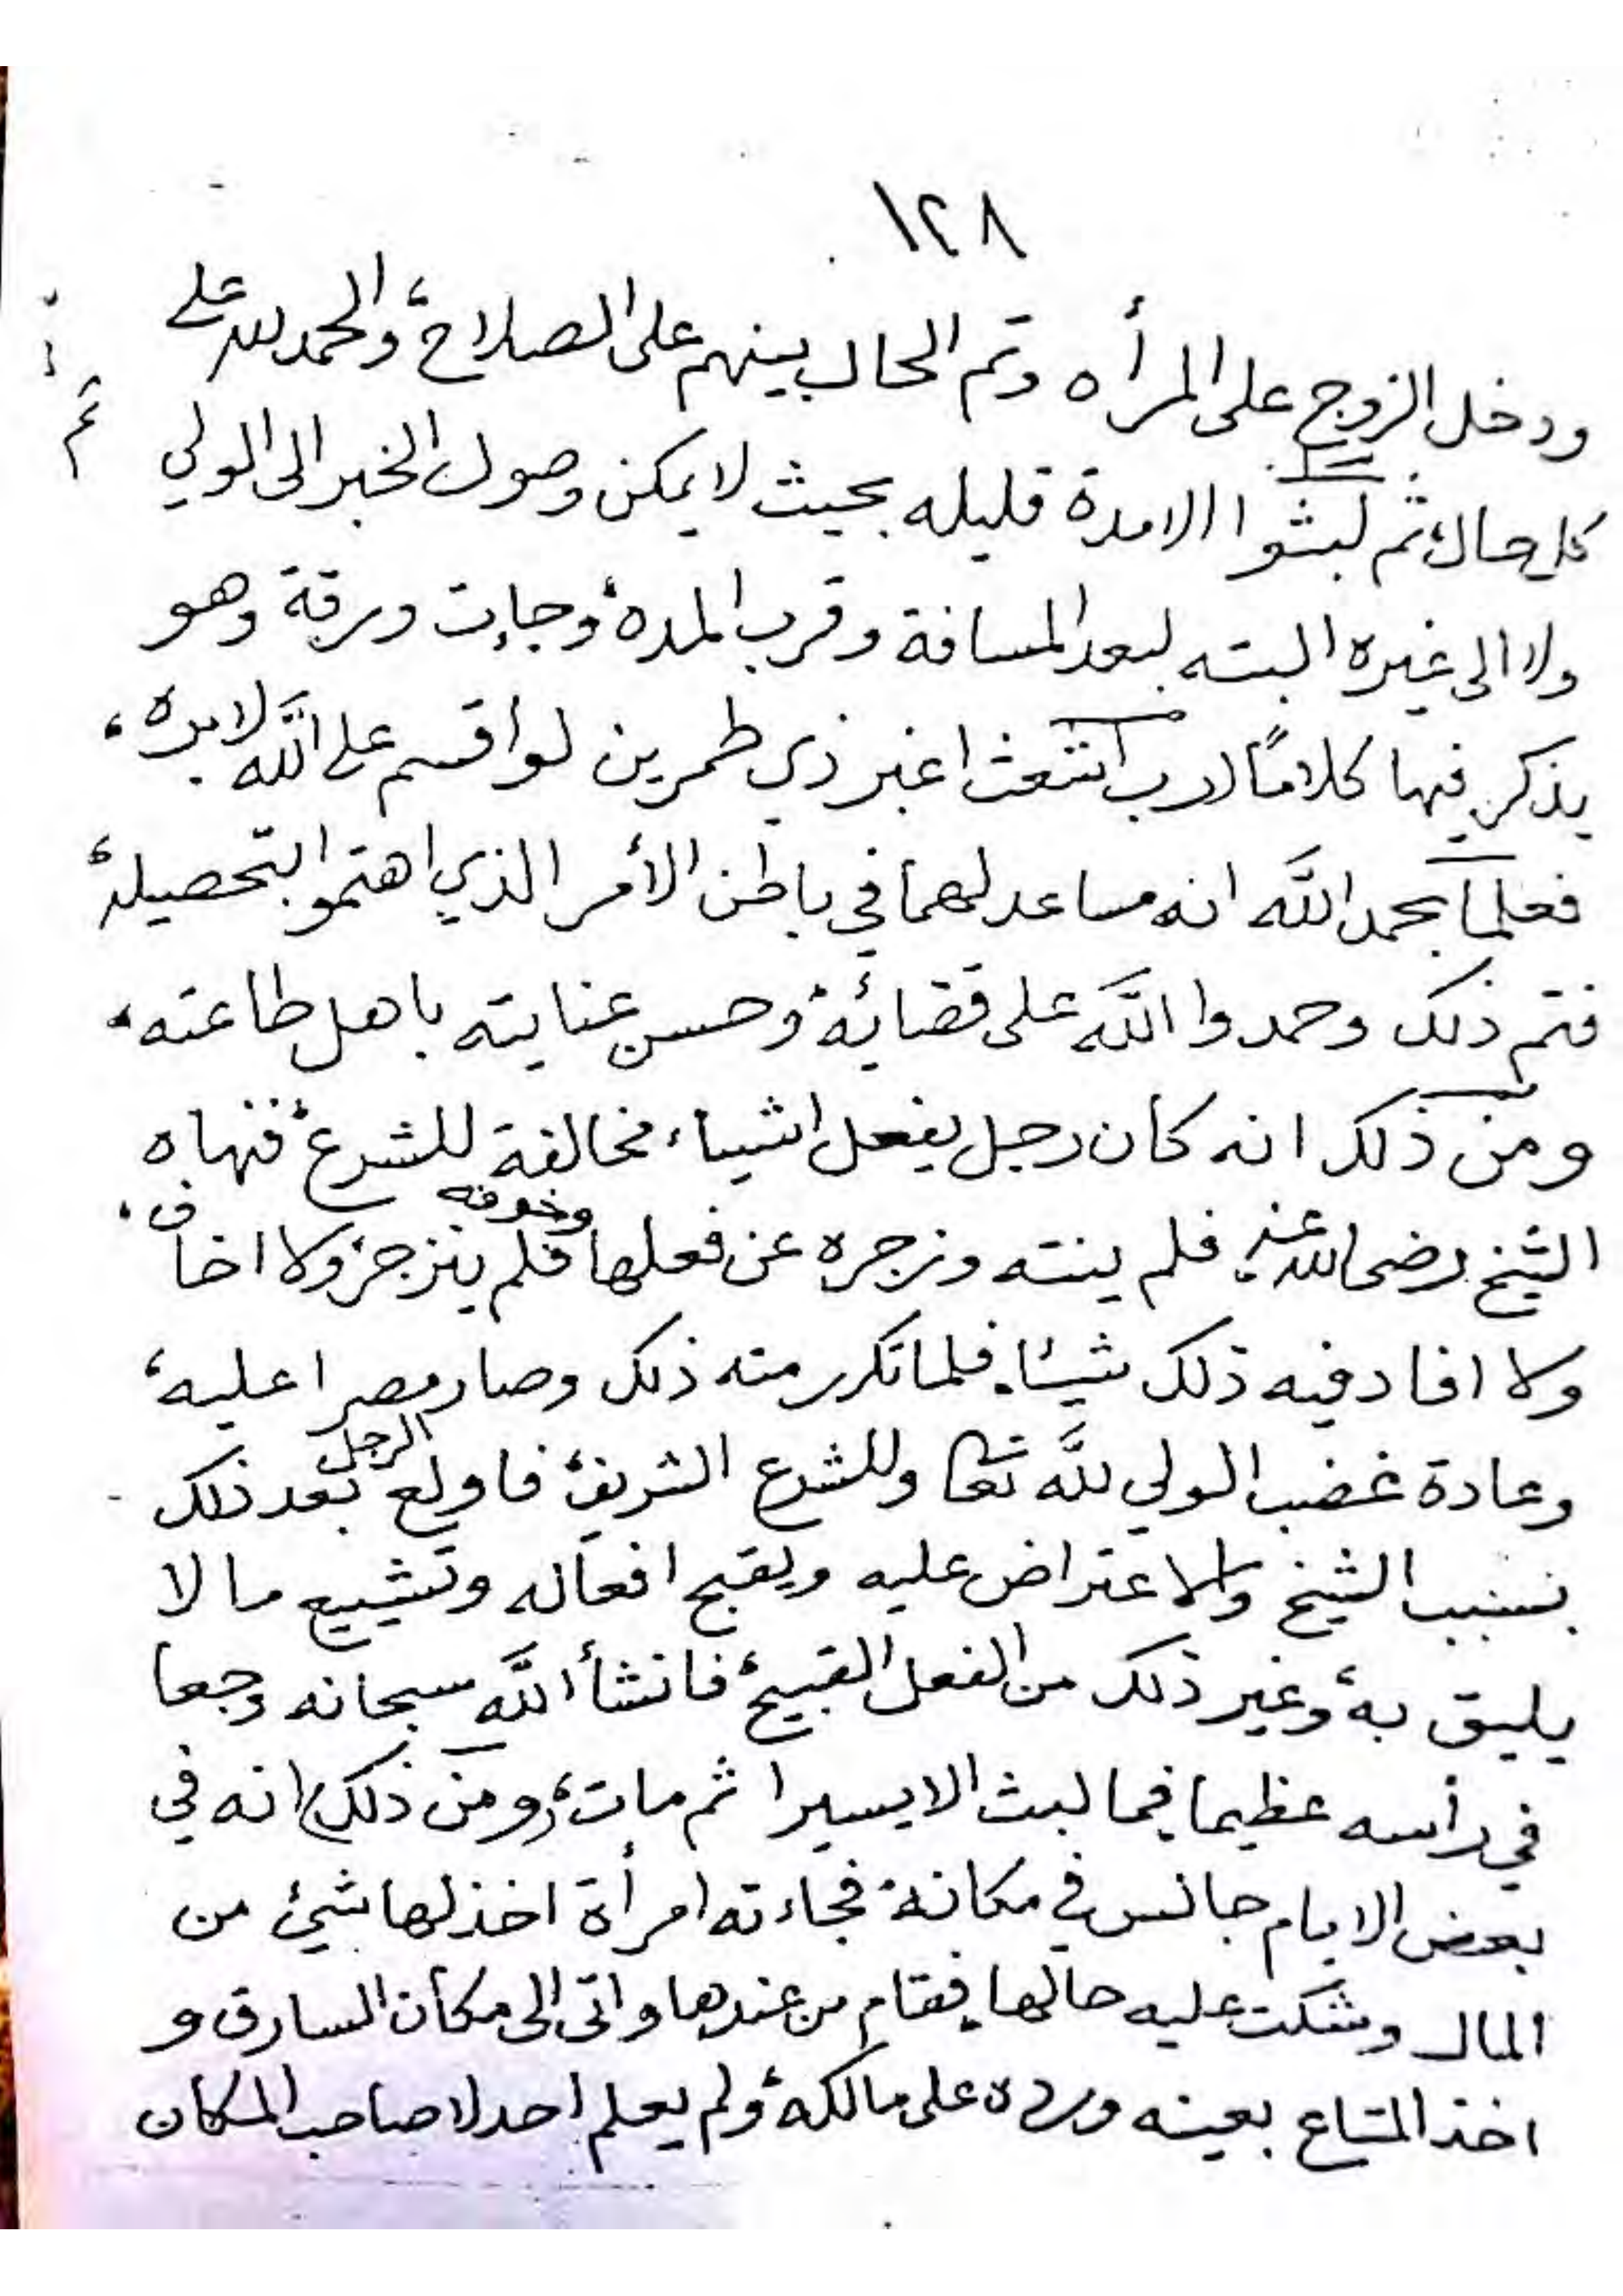 ١٢٨
ودخل الزوج على المرأه وتم الحال بينهم على الصلاح، والحمد لله على
كل حال، ثم لبثوا الا مدة قليله بحيث لا يمكن وصول الخبر الى الولي ثم
ولا الى غيره البته لبعد المسافة وقرب المده، وجاءت ورقة وهو
يذكر فيها كلامًا رب اشعث اغبر ذي طمرين لو اقسم على اللّه لابره،
فعلما بحمد اللّه انه مساعد لهما في باطن الأمر الذي اهتموا بتحصيله،
فتم ذلك وحمدوا اللّه على قضائه، وحسن عنايته باهل طاعته،
ومن ذلك انه كان رجل يفعل اشياء مخالفة للشرع، فنهاه
الشيخ رضى الله عنه فلم ينته وزجره عن فعلها وخوفه فلم ينزجر، ولا اخاف،
ولا افاد فيه ذلك شيئا، فلما تكرر منه ذلك وصار مصرا عليه،
وعادة غضب الولي للّه تعا وللشرع الشريف، فاولع الرجل بعد ذلك
بسبب الشيخ والاعتراض عليه ويقبح افعاله وتشييع ما لا
يليق به، وغير ذلك من الفعل القبيح، فانشأ اللّه سبحانه وجعا
في رأسه عظيما فما لبث الا يسيرا ثم مات، (ومن ذلك) انه في
بعض الايام جالس في مكانه، فجاءته امرأة اخذ لها شيئ من
المال وشكت عليه حالها، فقام من عندها واتى الى مكان السارق و
اخذ المتاع بعينه ورده على مالكه، ولم يعلم احد لا صاحب المكان